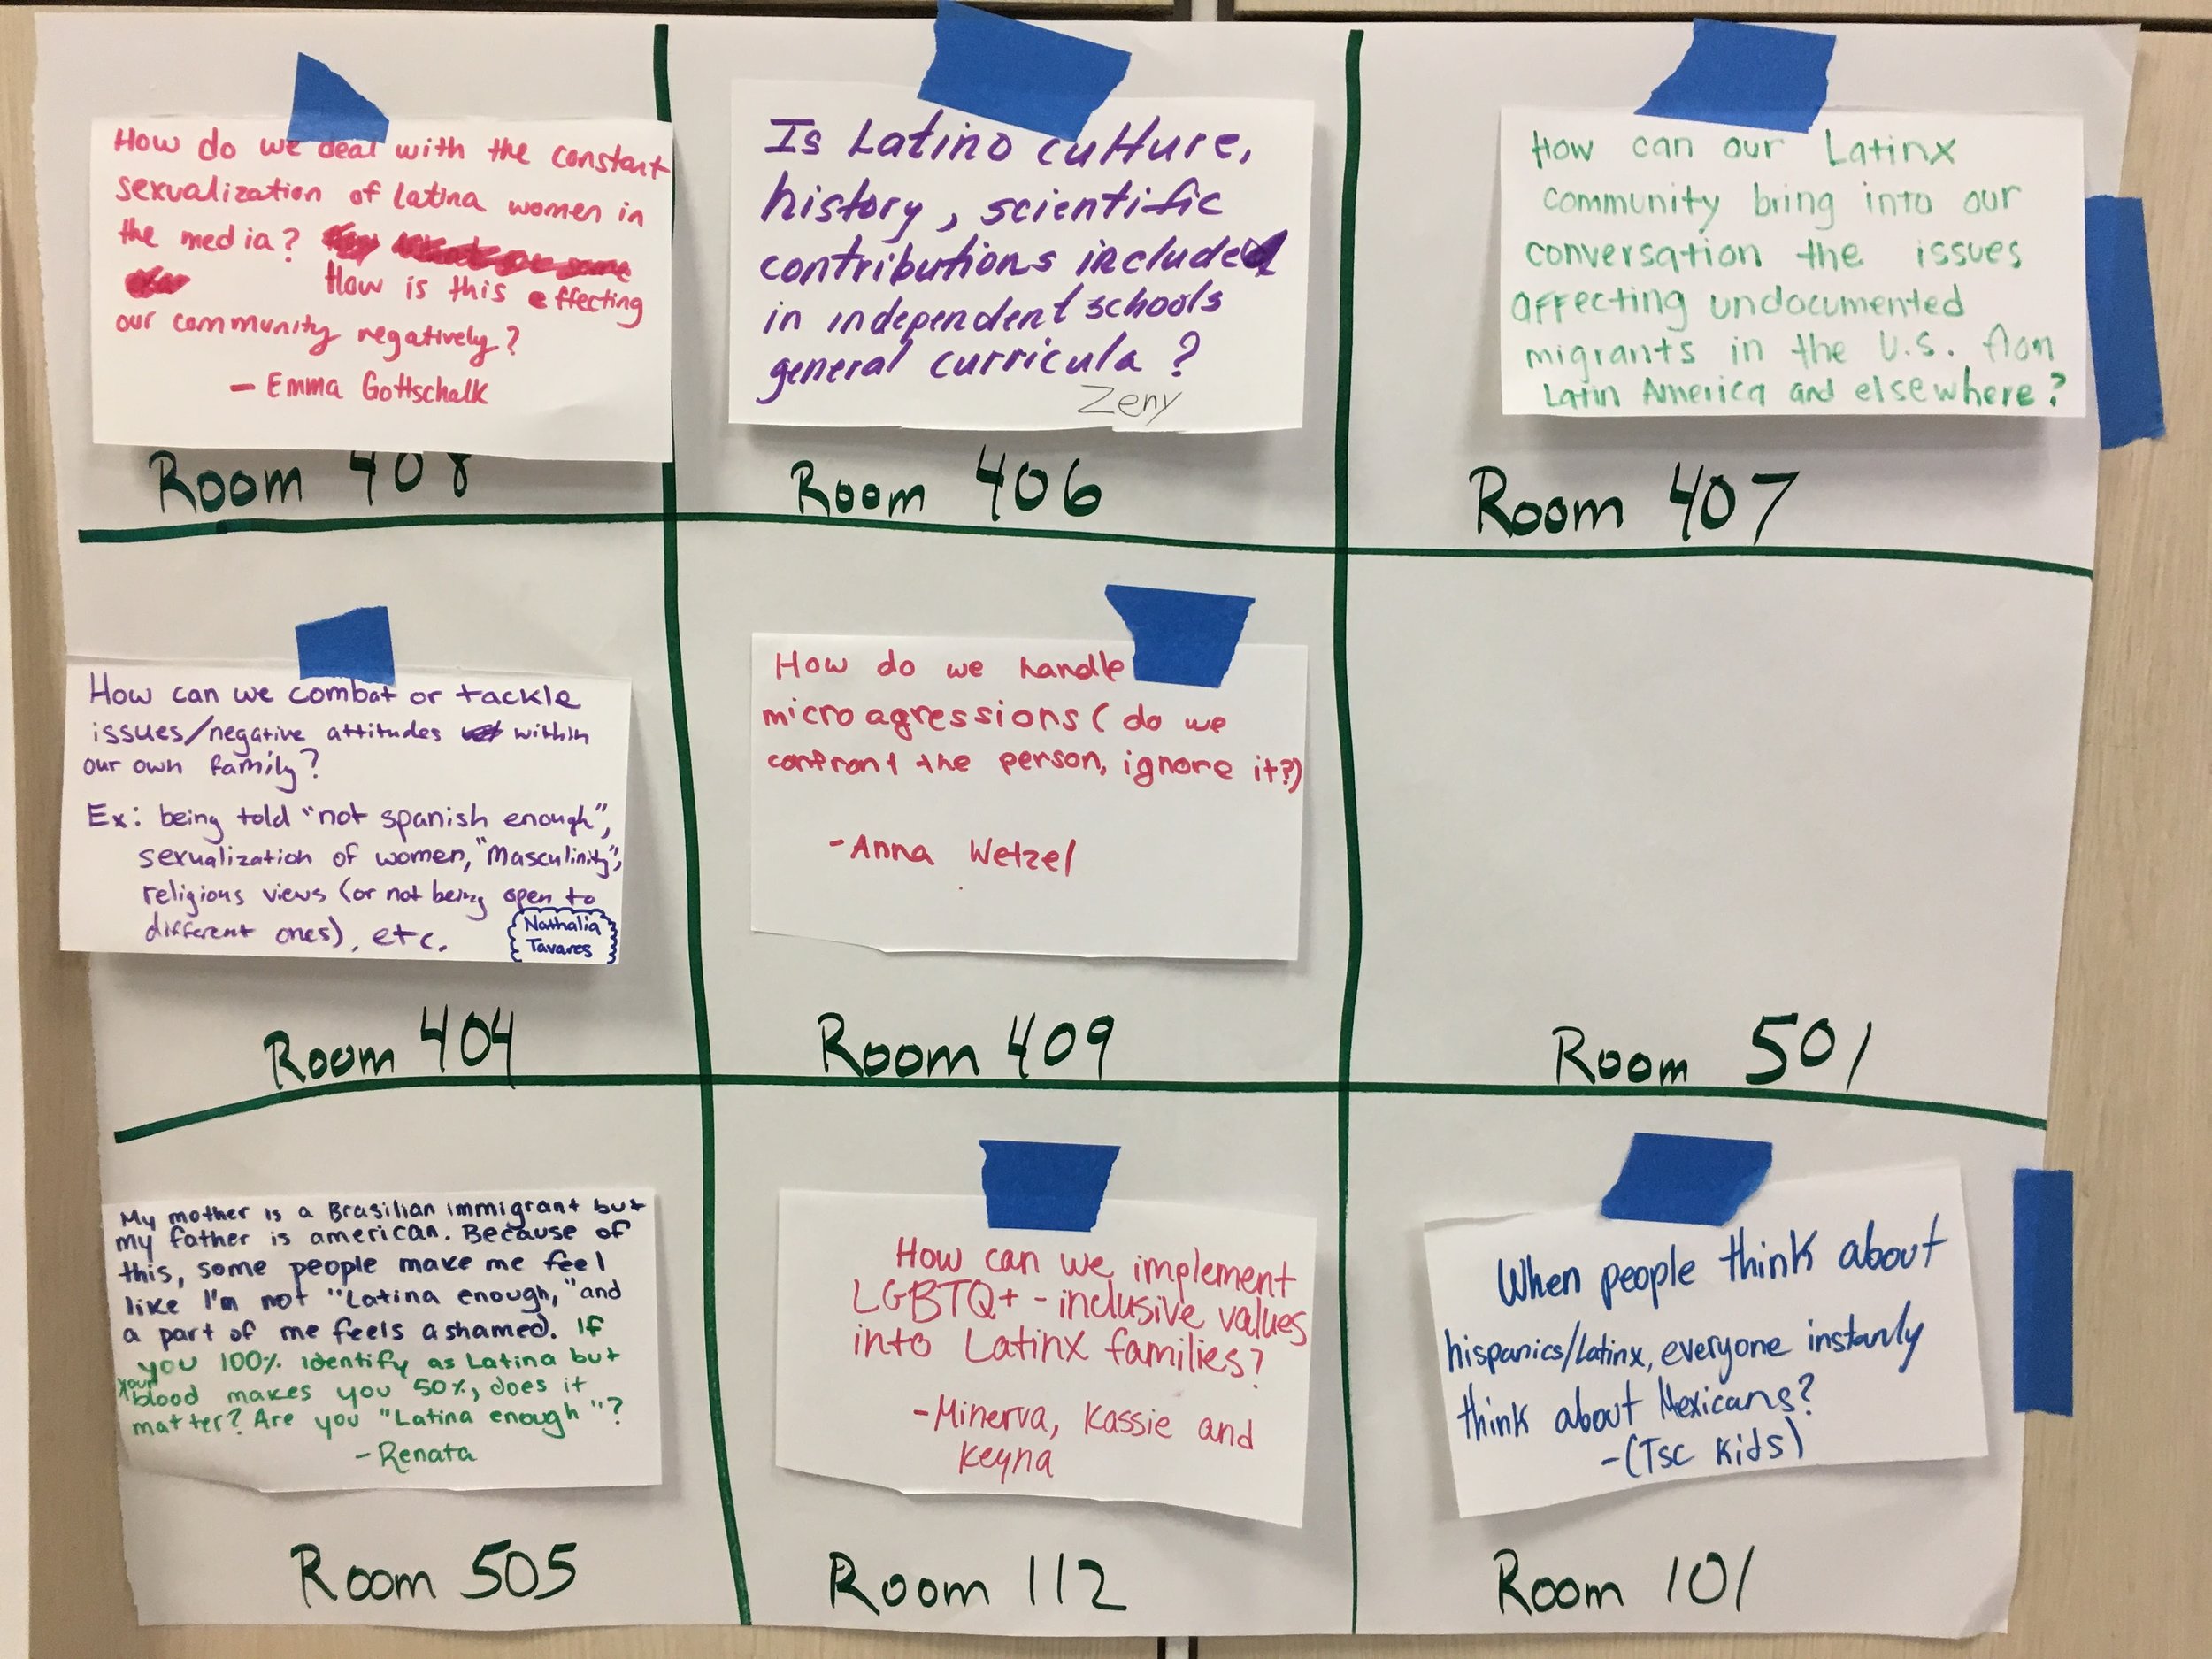 How do we deal with the constant
sexualization of latina women in
the media?
How is this effecting
our community negatively?
- Emma Gottschalk
Room 408
Is Latino culture,
history, scientific
contributions included
in independent schools
general curricula?
Zeny
Room 406
How can our Latinx
community bring into our
conversation the issues
affecting undocumented
migrants in the U.S. from
Latin America and elsewhere?
Room 407
How can we combat or tackle
issues/negative attitudes within
our own family?
Ex: being told "not spanish enough",
sexualization of women, "Masculinity",
religious views (or not being open to
different ones), etc.
Nathalia
Tavares
Room 404
How do we handle
microagressions (do we
confront the person, ignore it?)
-Anna Wetzel
Room 409
Room 501
My mother is a Brasilian immigrant but
my father is american. Because of
this, some people make me feel
like I'm not "Latina enough," and
a part of me feels ashamed. If
you 100% identify as Latina but
your blood makes you 50%, does it
matter? Are you "Latina enough"?
-Renata
Room 505
How can we implement
LGBTQ+ -inclusive values
into Latinx families?
-Minerva, Kassie and
Keyna
Room 112
When people think about
hispanics/Latinx, everyone instanly
think about Mexicans?
-(TSC Kids)
Room 101